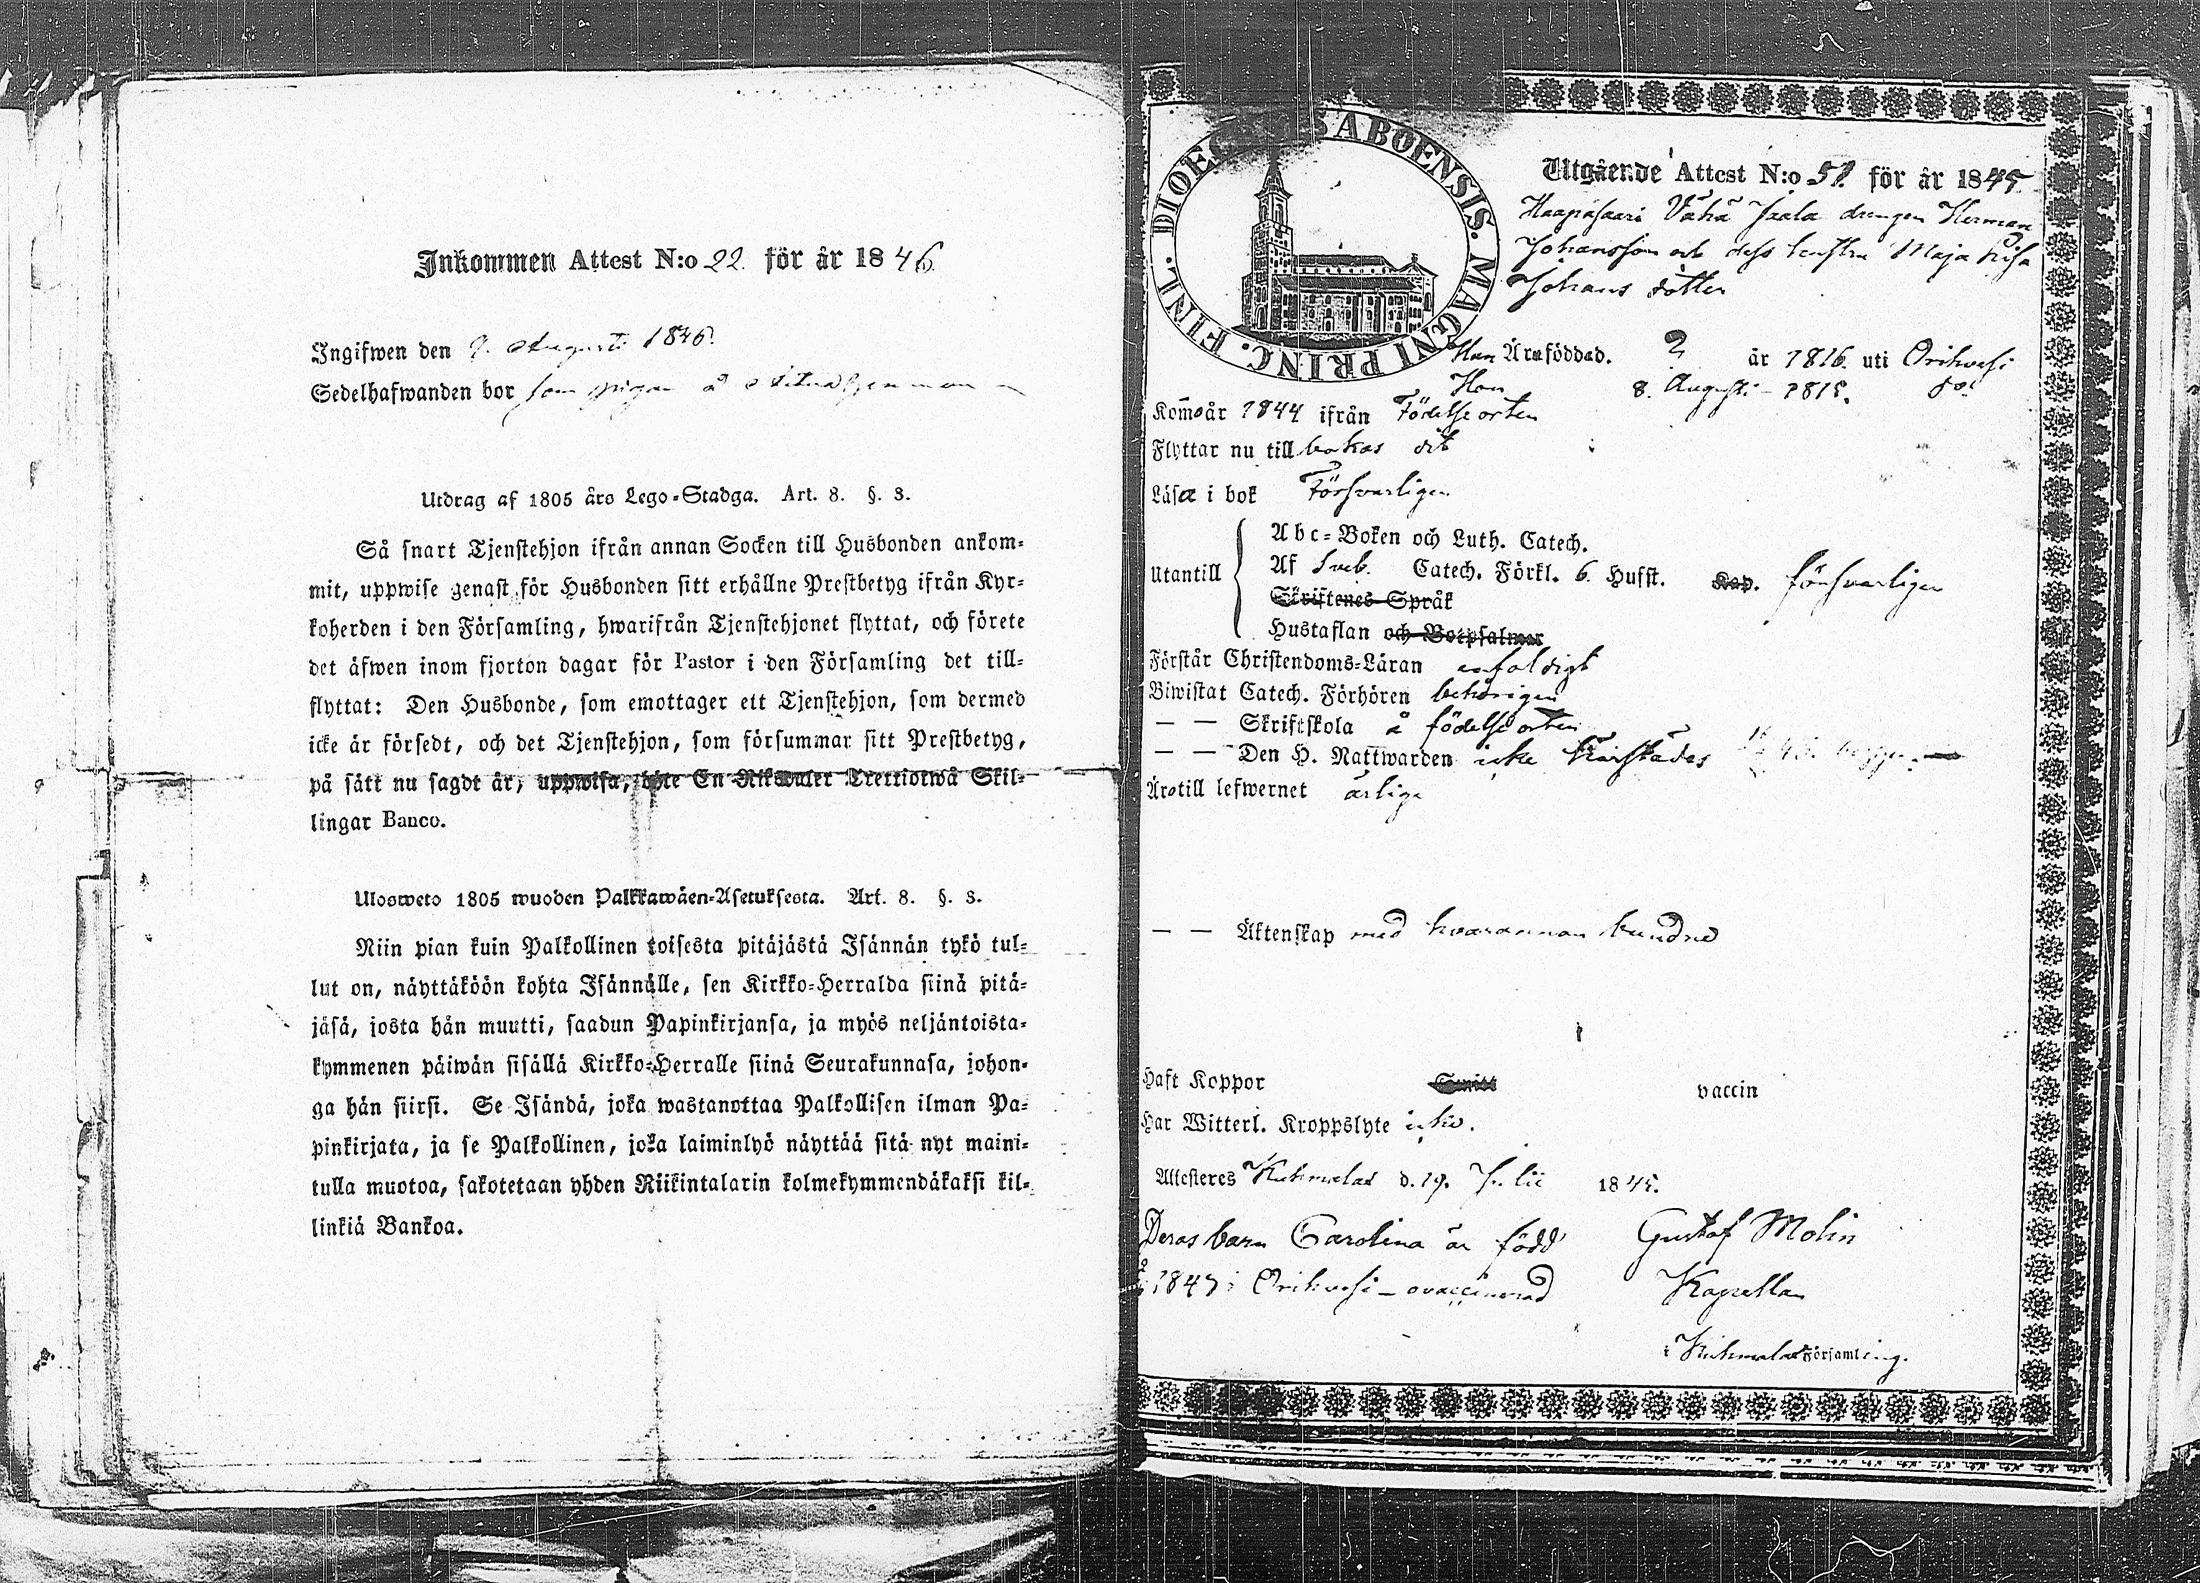 Inkommen Attest N:o 22. för år 1846.
Ingifwen den 9. Augusti 1846.
Sedelhafwanden bor som pigan å
Utdrag af 1805 års Lego-Stadga. Art. 8. §. 3.
Så snart Tjenstehjon ifrån annan Socken till Husbonden ankom-
mit, uppwise genast för Husbonden sitt erhållne Prestbetyg ifrån Kyr-
koherden i den Församling, hwarifrån Tjenstehjonet flyttat, och förete
det äfwen inom fjorton dagar för Pastor i den Församling det till-
flyttat: Den Husbonde, som emottager ett Tjenstehjon, som dermed
icke är försedt, och det Tjenstehjon, som försummar sitt Prestbetyg,
på sätt nu sagdt är, uppwisa, böte En Riksdaler Trettiotwå Skil-
lingar Banco.
Ulosweto 1805 wuoden Palkkawäen-Asetuksesta. Art. 8. §. 3.
Niin pian kuin Palkollinen toisesta pitäjästä Isännän tykö tul-
lut on, näyttäköön kohta Isännälle, sen Kirkko-Herralda siinä pitä-
jäsä, josta hän muutti, saadun Papinkirjansa, ja myös neljäntoista-
kymmenen päiwän sisällä Kirkko-Herralle siinä Seurakunnasa, johon-
ga hän siirsi. Se Isändä, joka wastanottaa Palkollisen ilman Pa-
pinkirjata, ja se Palkollinen, joka laiminlyö näyttää sitä nyt maini-
tulla muotoa, sakotetaan yhden Riikintalarin kolmekymmendäkaksi kil-
linkiä Bankoa.
DIOECESIS ABOENSIS. MAGNI PRINC. FINL.
Utgående Attest N:o 51. för år 1845
Haapasaari Vähä Jaala drengen Herman
Johansson och dess hustru Maja Lisa
Johans dotter
Han Äro född d. ? år 1816. uti Orihvesi
Hon 8. Augusti - 1815. do:
Komo år 1844 ifrån Födelseorten
Flyttar nu till bakas dit
Läsa i bok Försvarligen
Abc-Boken och Luth. Catech.
Utantill Af Sveb. Catech. Förkl. 6. Hufst. Kap. försvarligen
Skriftenes Språk
Hustaflan och Botpsalmer
Förstår Christendoms-Läran enfaldigt
Biwistat Catech. Förhören behörigen
— — Skriftskola å födelseorten
— — Den H. Nattwarden icke härstädes
Äro till lefwernet ärliga
— — Äktenskap med hvarannan bundne
Haft Koppor Smitt vaccin
Har Witterl. Kroppslyte icke.
Attesteres Kuhmalax d. 19. Julii 1845.
Deras barn Carolina är född
1843 i Orihvesi - ovaccinerad
Gustaf Molin
Kapellan
i Kuhmalax Församling.